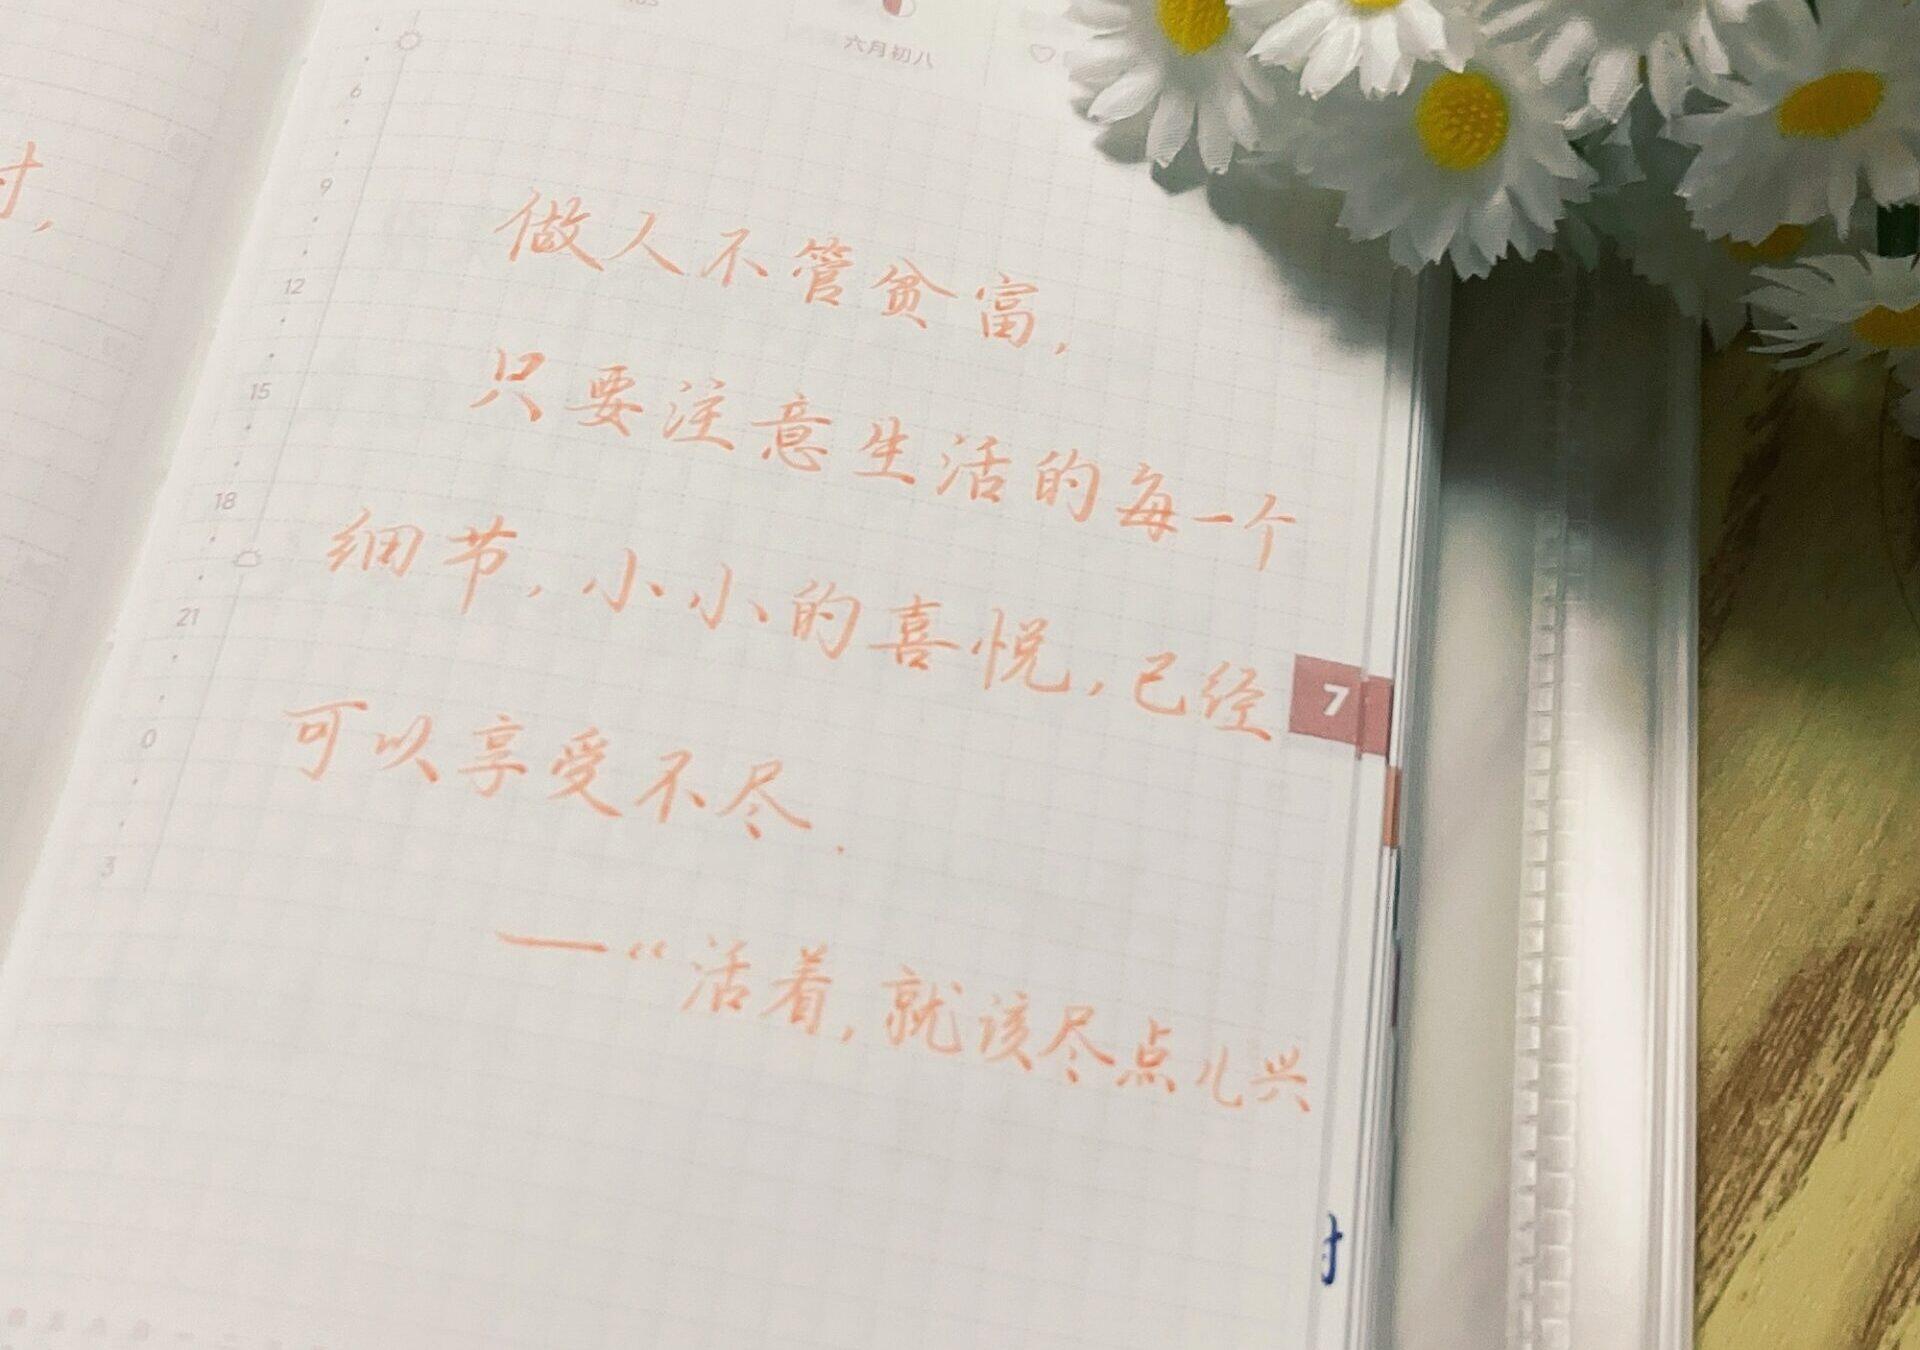 六月初八
6
9
12
15
18
21
0
3
寸,
做人不管贫富,
只要注意生活的每一个
细节,小小的喜悦,已经
可以享受不尽.
—“活着,就该尽点儿兴
7